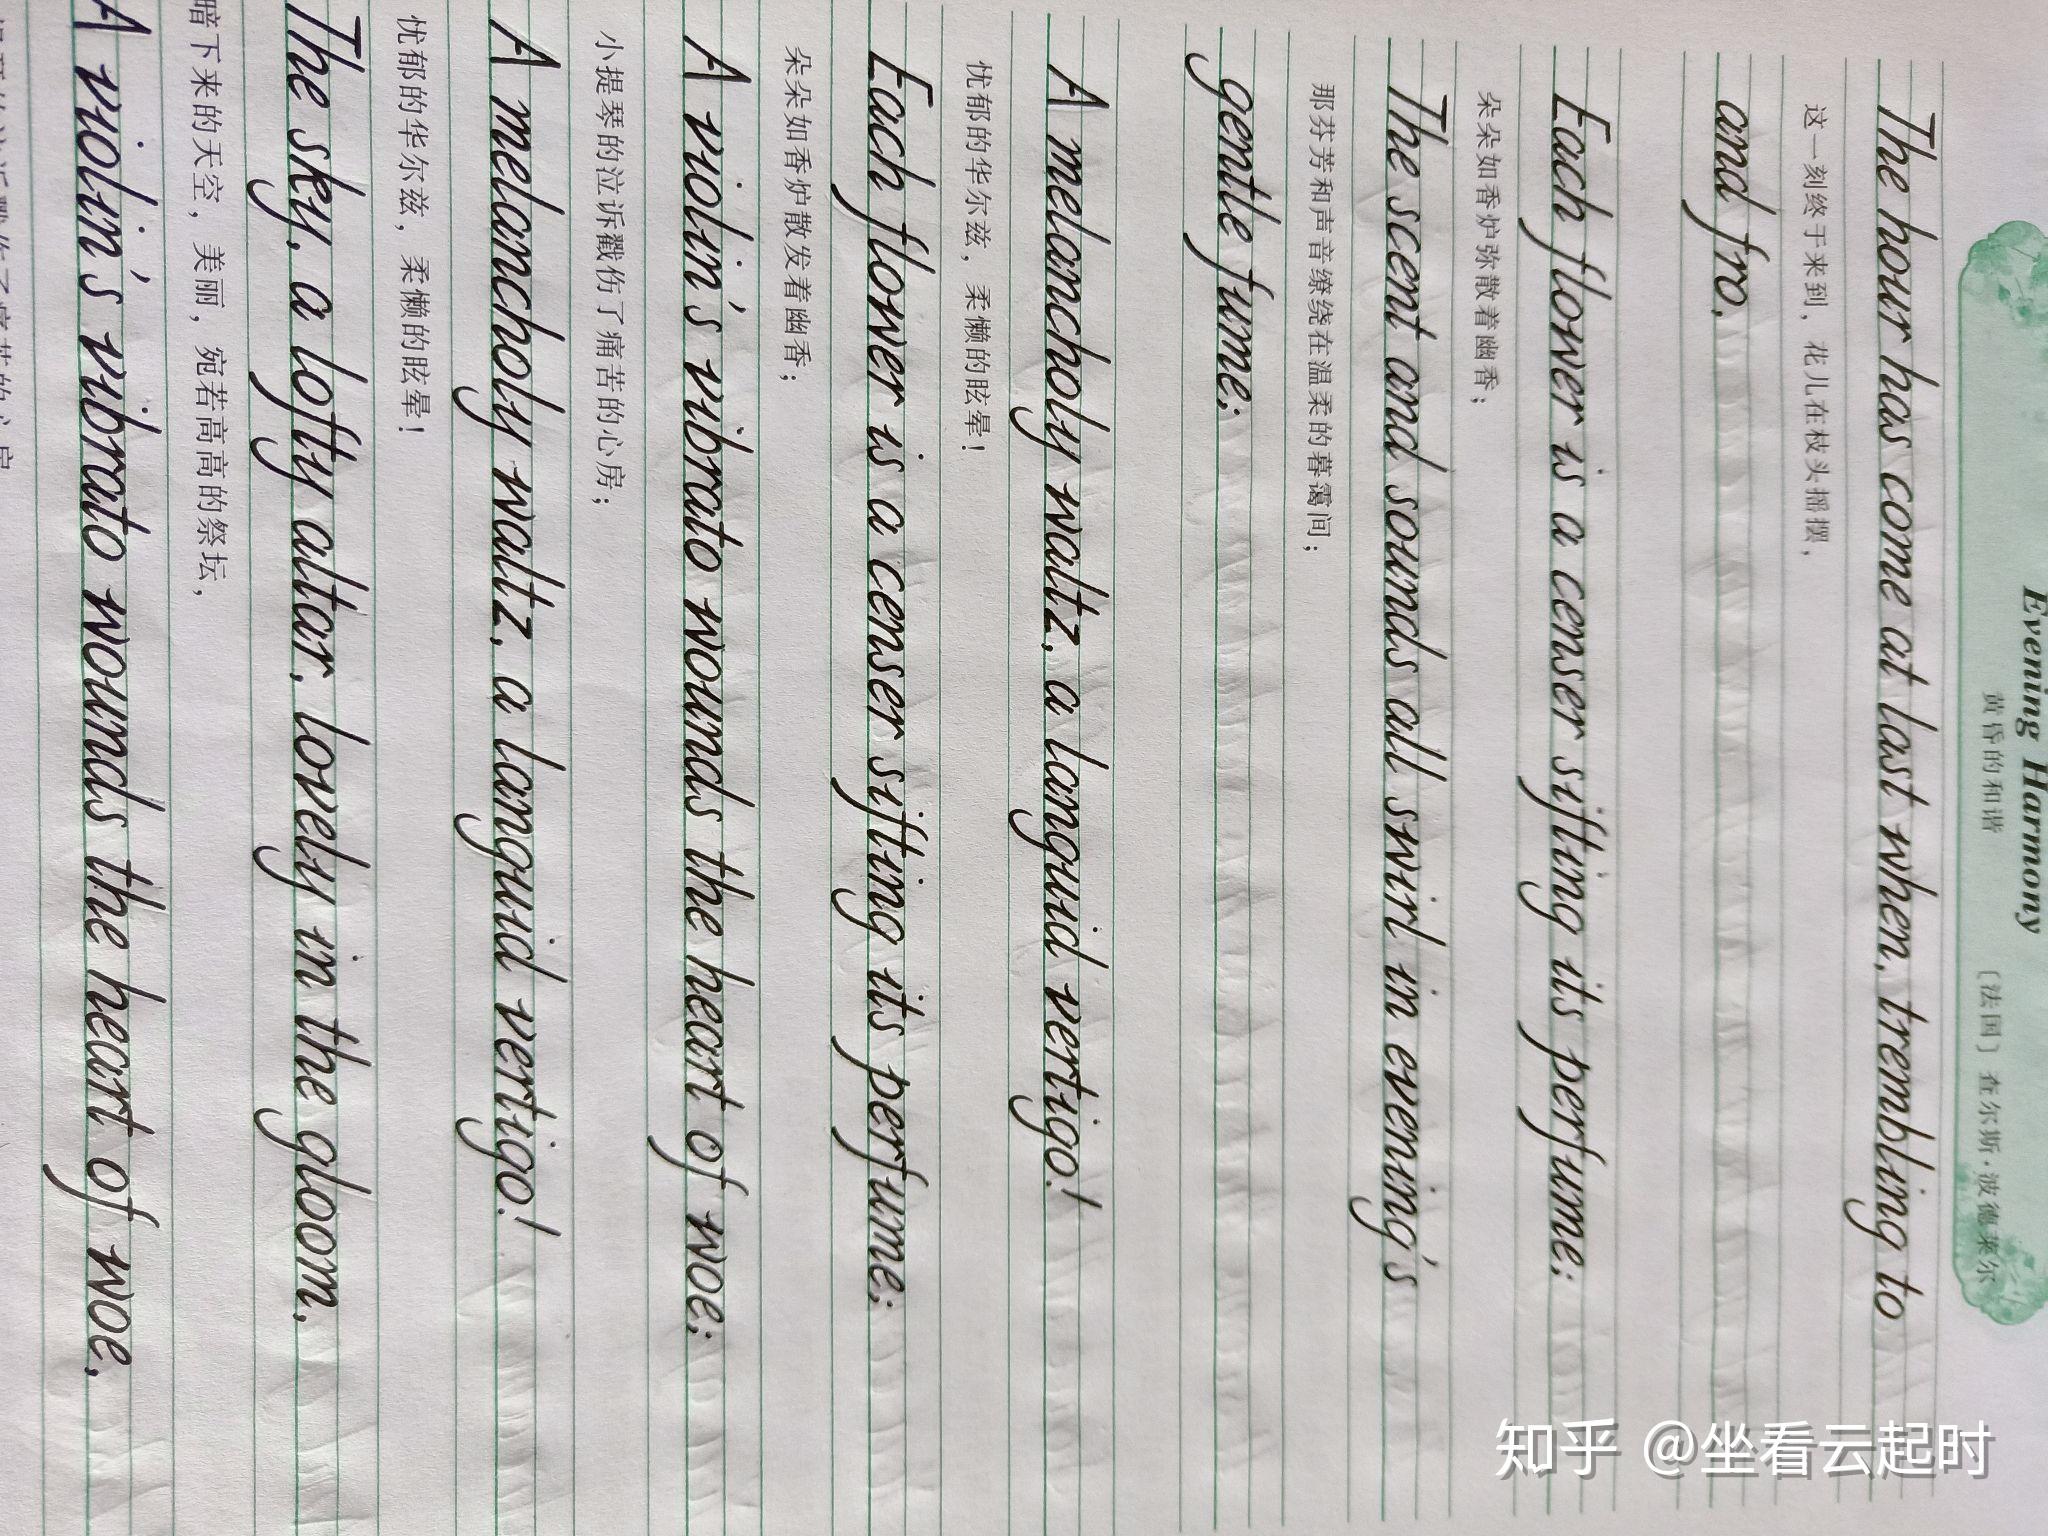 Evening Harmony
黄昏的和谐
〔法国〕查尔斯·波德莱尔
The hour has come at last when, trembling to
这一刻终于来到，花儿在枝头摇摆，
and fro,
Each flower is a censer sifting its perfume;
朵朵如香炉弥散着幽香；
The scent and sounds all swirl in evening's
那芬芳和声音缭绕在温柔的暮霭间；
gentle fume;
A melancholy waltz, a languid vertigo!
忧郁的华尔兹，柔懒的眩晕！
Each flower is a censer sifting its perfume;
朵朵如香炉散发着幽香；
A violin's vibrato wounds the heart of woe;
小提琴的泣诉戳伤了痛苦的心房；
A melancholy waltz, a languid vertigo!
忧郁的华尔兹，柔懒的眩晕！
The sky, a lofty altar, lovely in the gloom,
暗下来的天空，美丽，宛若高高的祭坛，
A violin's vibrato wounds the heart of woe,
知乎 @坐看云起时